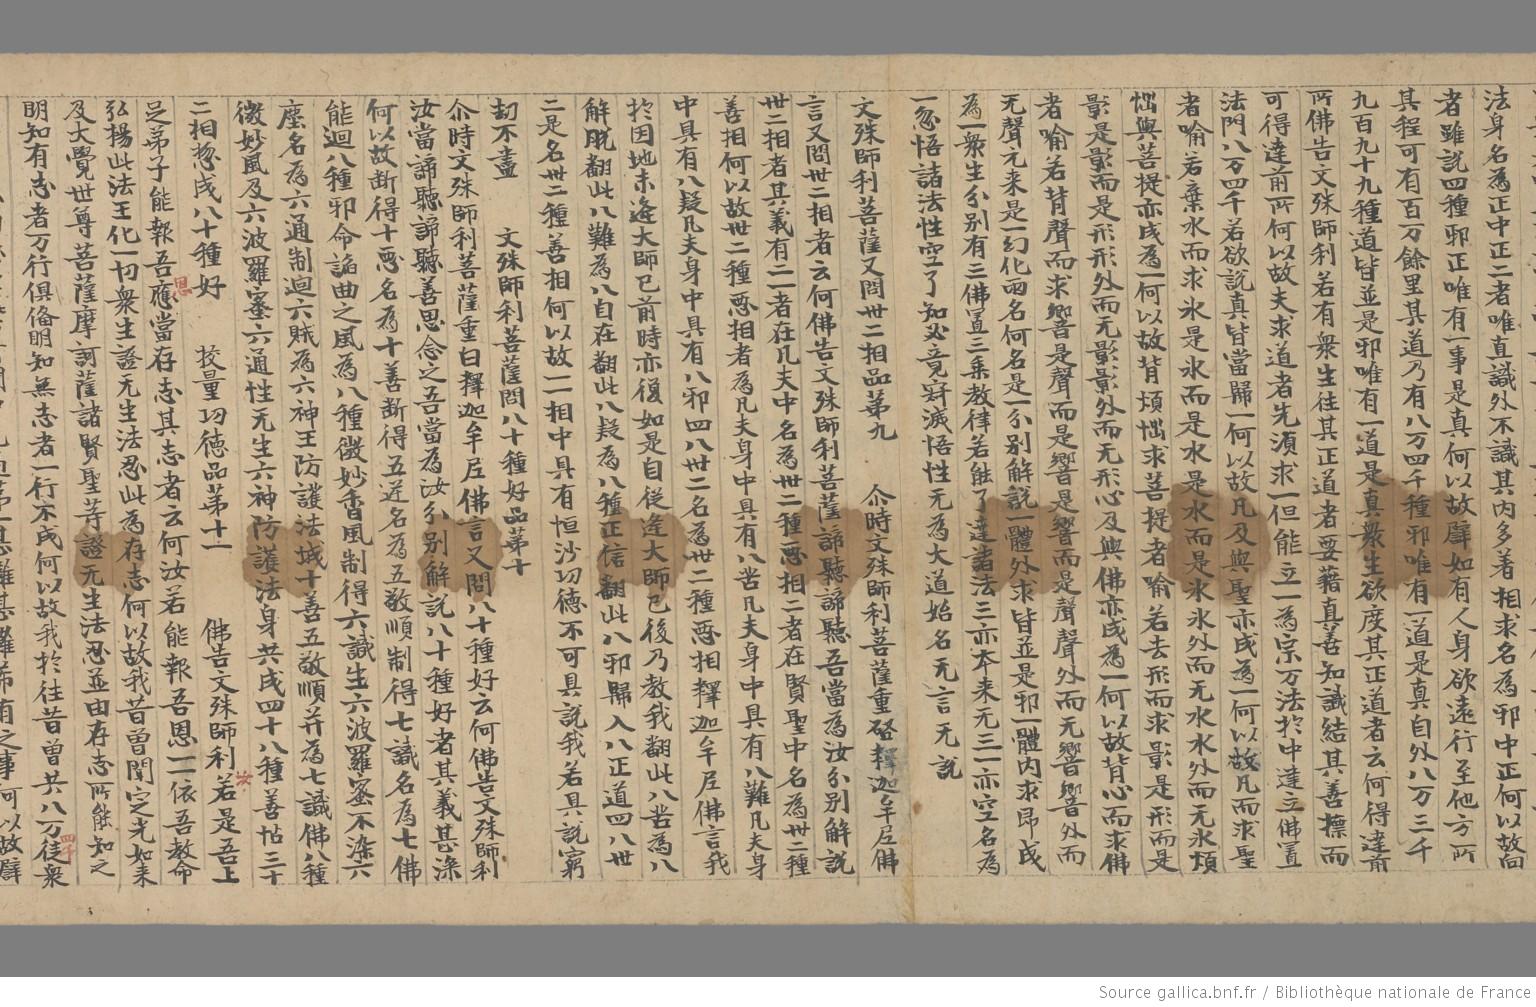 法身名為正中正二者唯直識外不識其內多著相求名為邪中正何以故向
者雖說四種邪正唯有一事是真何以故譬如有人身欲遠行至他方所
其程可有百万餘里其道乃有八万四千種邪唯有一道是真自外八万三千
九百九十九種道皆並是邪唯有一道是真衆生欲度其正道者云何得達前
所佛告文殊師利若有衆生往其正道者要藉真善知識結其善標而
可得達前所何以故夫求道者先須求一但能立一為宗万法於中達立佛置
法門八万四千若欲說真皆當歸一何以故凡及與聖亦成為一何以故凡而求聖
者喻若棄水而求氷是氷而是水是水而是氷氷外而无水水外而无氷煩
惱與菩提亦成為一何以故背煩惱求菩提者喻若去形而求影是形而是
影是影而是形形外而无影影外而无形心及與佛亦成為一何以故背心而求佛
者喻若背聲而求響是聲而是響是響而是聲聲外而无響響外而
无聲元来是一幻化兩名何名是一分別解說一體外求皆並是邪一體内求即成
為一衆生分別有三佛置三乘教律若能了達諸法三亦本来无三一亦空名為
一忽悟諸法性空了知必竟寂滅悟性无為大道始名无言无說
文殊師利菩薩又問卅二相品苐九 尒時文殊師利菩薩重啓釋迦牟尼佛
言又問卅二相者云何佛告文殊師利菩薩諦聽諦聽吾當為汝分別解說
卅二相者其義有二一者在凡夫中名為卅二種惡相二者在賢聖中名為卅二種
善相何以故卅二種惡相者為凡夫身中具有八苦凡夫身中具有八難凡夫身
中具有八疑凡夫身中具有八邪四八卅二名為卅二種惡相釋迦牟尼佛言我
於因地未逢大師已前時亦復如是自從逢大師已後乃教我翻此八苦為八
解脫翻此八難為八自在翻此八疑為八種正信翻此八邪歸入八正道四八卅
二是名卅二種善相何以故一一相中具有恒沙功德不可具說我若具說窮
劫不盡 文殊師利菩薩問八十種好品苐十
尒時文殊師利菩薩重白釋迦牟尼佛言又問八十種好云何佛告文殊師利
汝當諦聽諦聽善思念之吾當為汝分別解說八十種好者其義甚深
何以故断得十惡名為十善断得五逆名為五敬順制得七識名為七佛
能迴八種邪命諂曲之風為八種微妙香風制得六識生六波羅蜜不染六
塵名為六通制迴六賊為六神王防護法城十善五敬順并為七識佛八種
微妙風及六波羅蜜六通性无生六神防護法身共成四十八種善怗三十
二相惣成八十種好 挍量功德品苐十一 佛告文殊師利若是吾上
足弟子能報吾恩應當存志其志者云何汝若能報吾恩一一依吾教命
弘揚此法王化一切衆生證无生法忍此為存志何以故我昔曾聞定光如来
及大覺世尊菩薩摩訶薩諸賢聖等證无生法忍並由存志所能知之
明知有志者万行俱俻明知無志者一行不成何以故我於往昔曾共八万四千徒衆